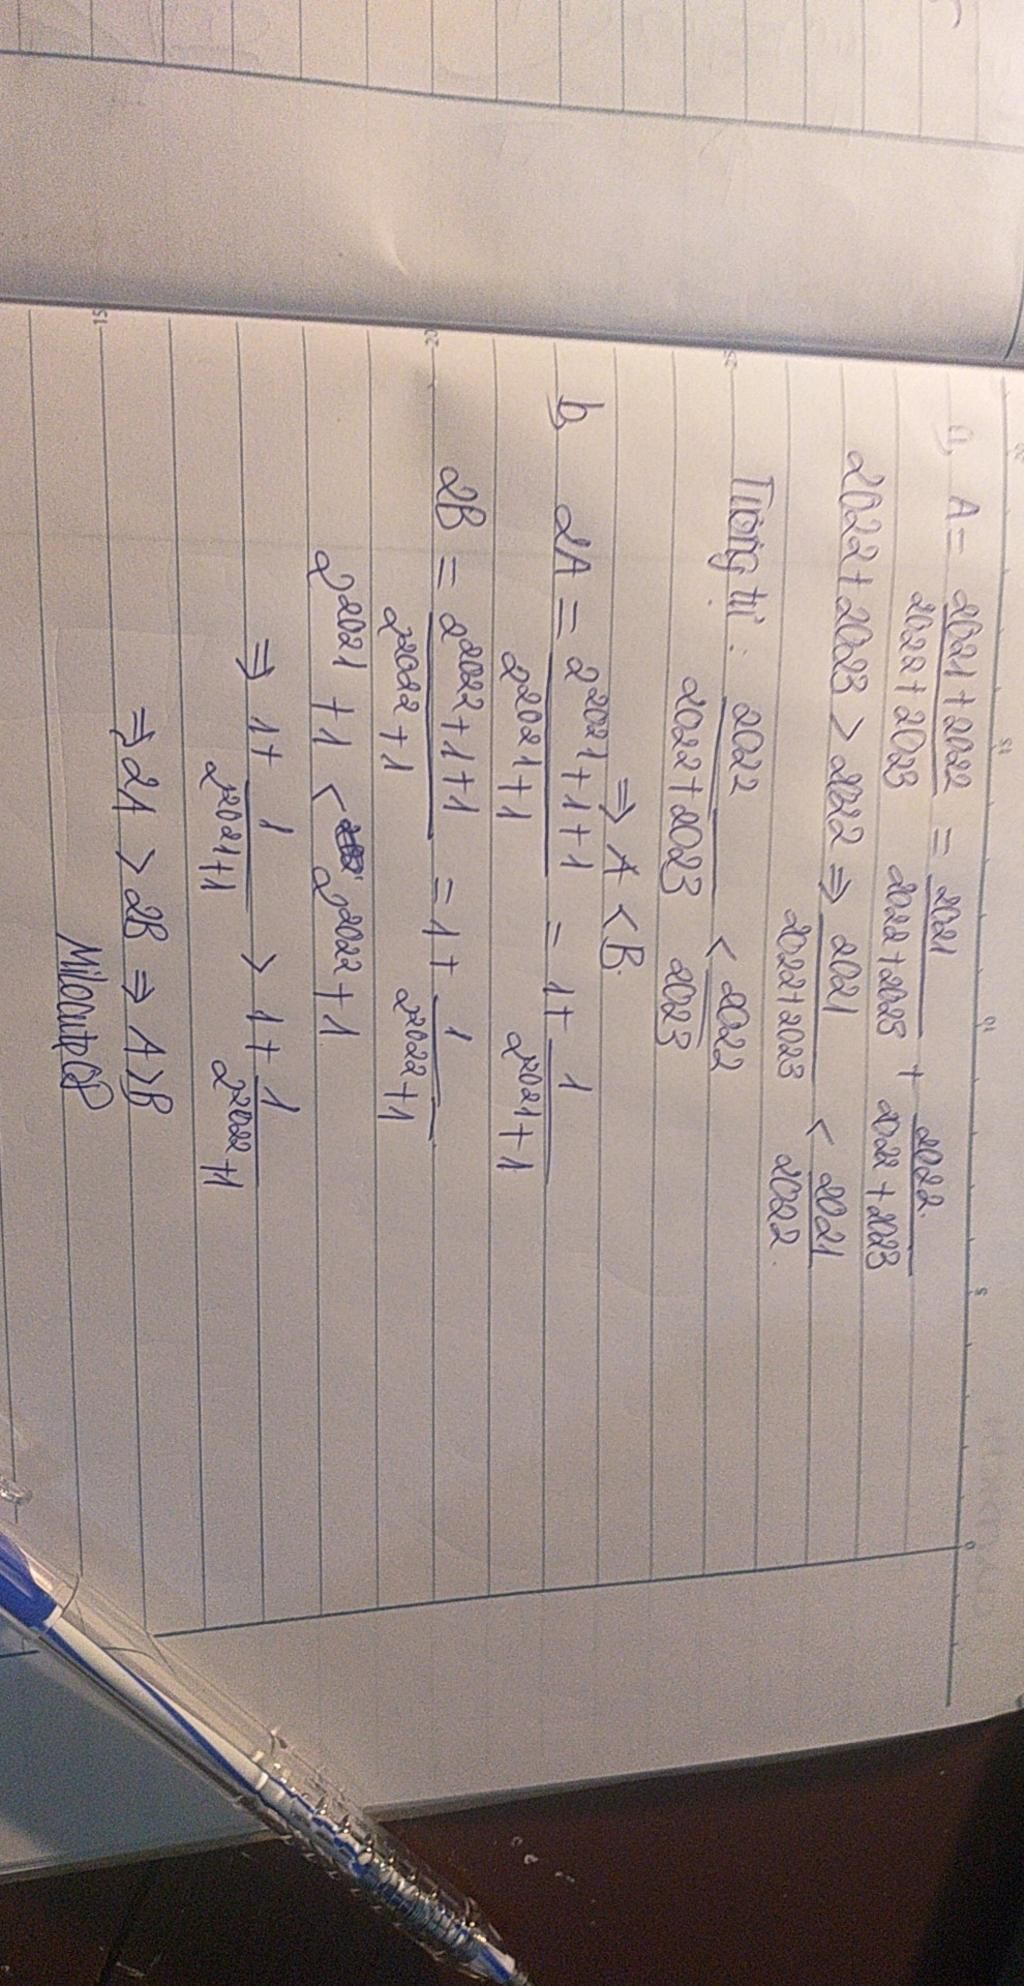 a, A = 2021+2022 / 2022+2023 = 2021 / 2022+2023 + 2022 / 2022+2023
2022+2023 > 2022 ⇒ 2021 / 2022+2023 < 2021 / 2022
Tương tự : 2022 / 2022+2023 < 2022 / 2023
⇒ A < B.
b, 2A = 2^2021+1+1 / 2^2021+1 = 1+ 1 / 2^2021+1
2B = 2^2022+1+1 / 2^2022+1 = 1+ 1 / 2^2022+1
2^2021 +1 < 2^2022 +1
⇒ 1+ 1 / 2^2021+1 > 1+ 1 / 2^2022+1
⇒ 2A > 2B ⇒ A>B